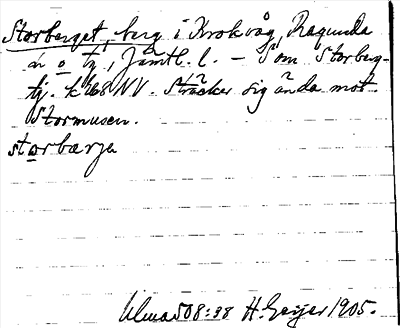 Storberget, berg i Krokvåg, Ragunda
n o tg, Jämtl. l. – Som Storberg-
tj. k 68 NV. Sträcker sig ända mot
Stormusen.
storbærje
Ulma 508:38 H. Geijer 1905.